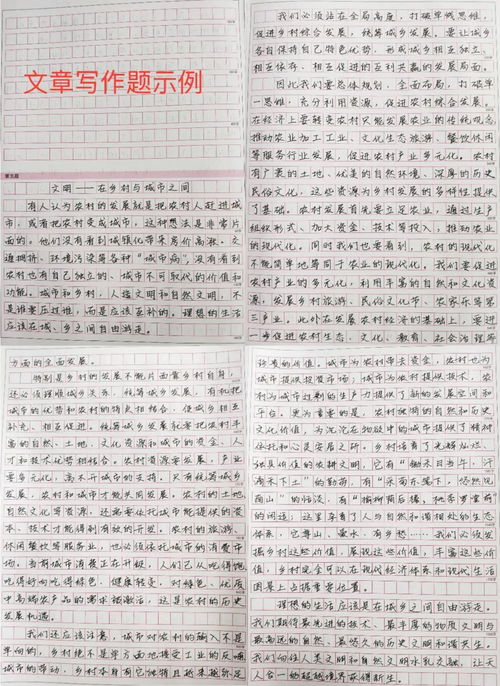 文章写作题示例
第五题
文明——在乡村与城市之间
有人认为农村的发展就是把农村人赶进城
市,或者把农村变成城市,这种想法是非常片
面的,他们没有看到城镇化带来房价高涨、交
通拥挤、环境污染等各种“城市病”,没有看到
农村也有自己独立的、城市不可取代的价值和
功能。城市和乡村,人造文明和自然文明,不
是谁要压过谁,而是应该互补的。理想的生活
应该在城、乡之间自由游走。
我们必须站在全局高度,打破单线思维,
促进乡村综合发展,统筹城乡发展。要让城乡
各自保持自己特色优势,形成城乡相互独立、
相互依存、相互促进的互利共赢的发展局面。
因此我们要总体规划,全面布局,打破单
一思维,充分利用资源,促进农村综合发展。
在经济上要转变农村只能发展农业的传统观念,
推动农业加工工业、文化生态旅游、餐饮休闲
等服务行业发展,促进农村产业多元化。农村
有广袤的土地、优美的自然环境、深厚的历史
民俗文化,这些资源为乡村发展的多样性提供
了基础。农村发展首先要立足农业,通过生产
组织形式、加大资金、技术等投入,推动农业
的现代化。同时我们也要看到,农村的现代化
不能简单地等同于农业的现代化。我们要促进
农村产业的多元化,利用丰富的自然和文化资
源,发展乡村旅游、民俗文化节、农家乐等第
三产业。此外在发展农村经济的基础上,要进
一步促进农村生态、文化、教育、社会治理等
方面的全面发展。
特别是乡村的发展不能片面靠乡村自身,
还必须理顺城乡关系,统筹城乡发展,有机把
城市的优势和农村的特点相结合,使城乡相互
补充、相互促进。统筹城乡发展就要把农村丰
富的自然、土地、文化资源和城市的资金、人
才和技术优势相结合。农村资源要发展,产业
要多元化,离不开城市的支持。只有统筹城乡
发展,农村和城市才能共同发展。农村的土地、
自然文化等资源,还需要依托城市能提供的资
本、技术才能得到有效的开发。农村的旅游、
休闲餐饮等服务业,也必须依托城市的消费市
场。当前城市消费正在升级,人们已从吃得饱
吃得好向吃得绿色、健康转变,对绿色、优质
中高端农产品的需求被激活,这是农村的历史
发展机遇。
我们还应该注意,城市对农村的输入不是
单向的,乡村绝不是单方面地接受工业的反哺
城市的带动,乡村本身有它独特且越来越弥足
珍贵的价值。城市为农村带去资金,农村也为
城市提供投资市场;城市为农村提供技术,农
村为城市过剩的生产力提供了新的发展空间和
平台。更为重要的是,农村独特的自然和历史
文化价值,为沉沦在物欲中的城市提供了精神
依托和心灵安居之所。乡村培育了光辉灿烂、
独具价值的农耕文明,它有“锄禾日当午,汗
滴禾下土”的勤劳,有“采菊东篱下,悠然见
南山”的恬淡,有“榆柳荫后檐,桃李罗堂前”
的闲适;这里孕育了人与自然和谐相处的生态
体系,它靠山、叠水、有乡愁……我们必须发
掘乡村这些价值,展现这些价值,丰富这些价
值,乡村完全可以在现代经济体系和现代生活
图景上占据重要位置。
理想的生活应该是在城乡之间自由游走。
我们期待最先进的技术、最丰厚的物质文明与
最高远的自然、最悠久的历史文明和谐共生。
我们向往人类文明和自然文明水乳交融,让天
人合一的超越境界获得新生。